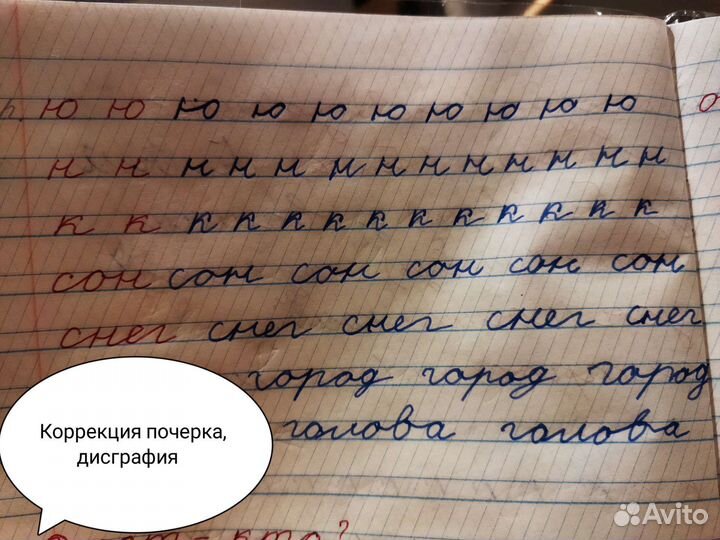 ю ю ю ю ю ю ю ю ю ю
н н н н н н н н н н н н
к к к к к к к к к к к к
сон сон сон сон сон сон
снег снег снег снег снег
город город город
голова голова
Коррекция почерка,
дисграфия
кто?
Avito